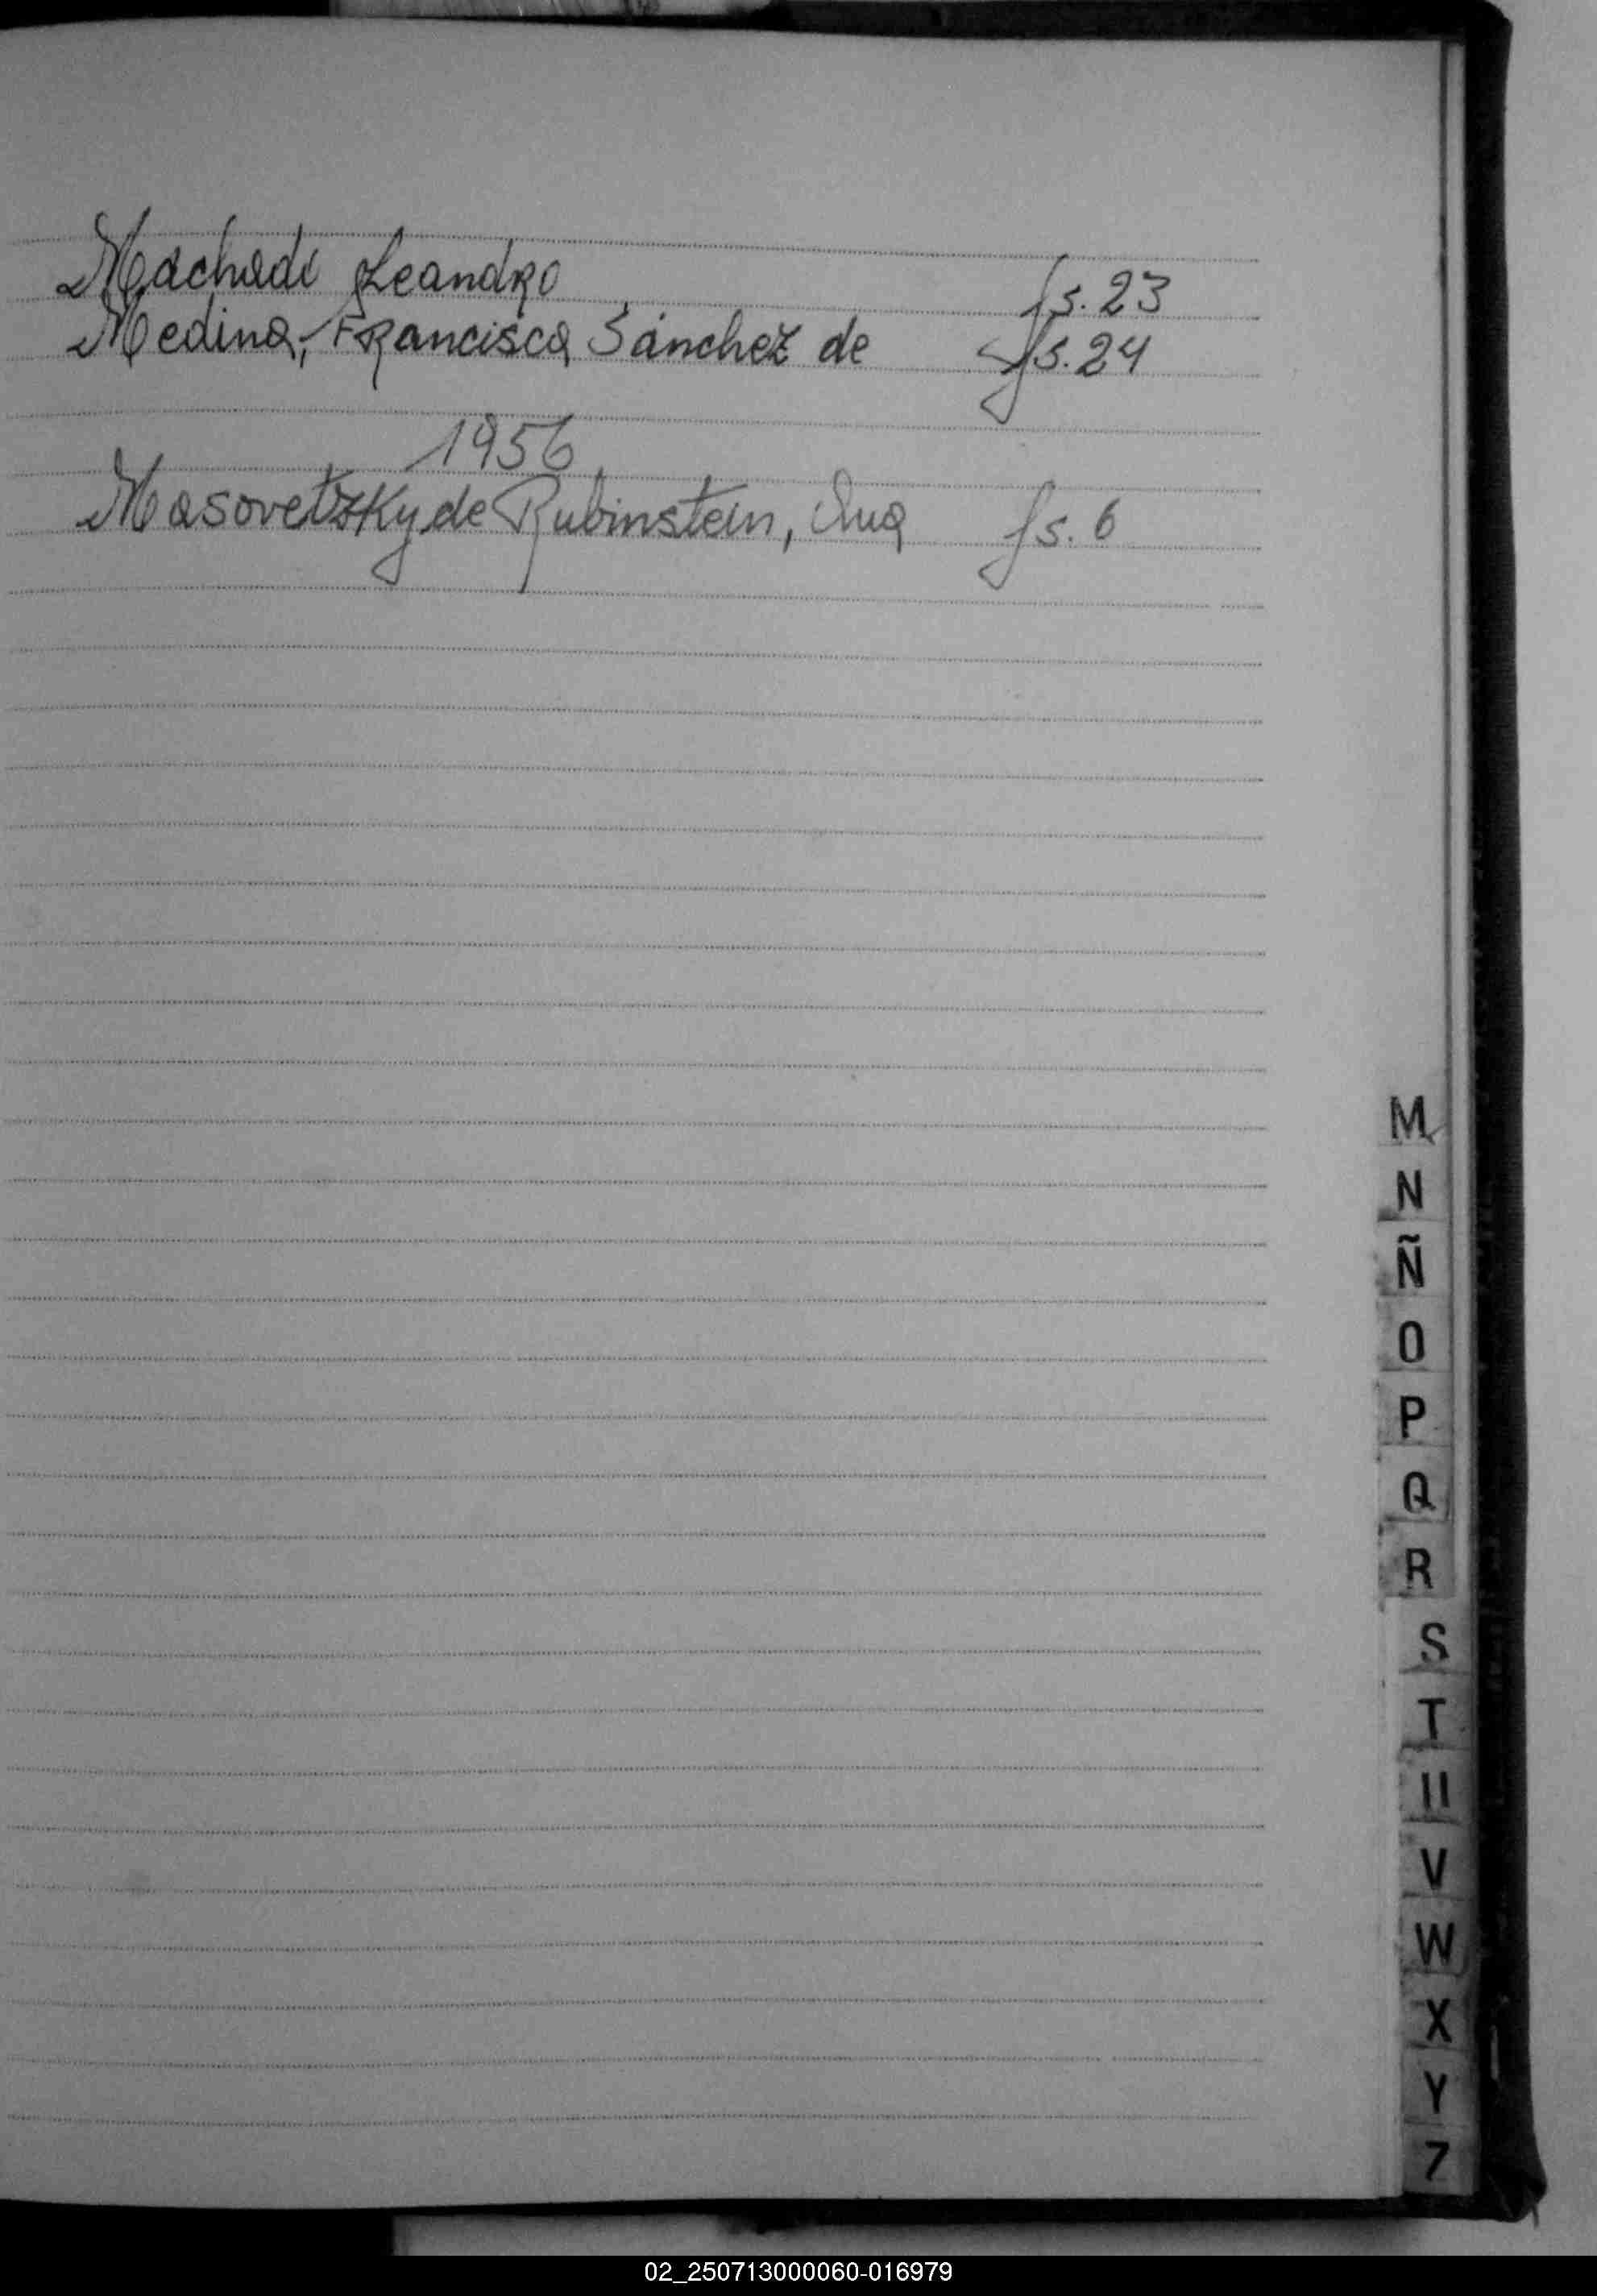 Machado Leandro fs. 23
Medina, Francisca Sánchez de fs. 24
1956
Masovetzky de Rubinstein, Ana fs. 6
M
N
Ñ
O
P
Q
R
S
T
U
V
W
X
Y
Z
02_250713000060-016979